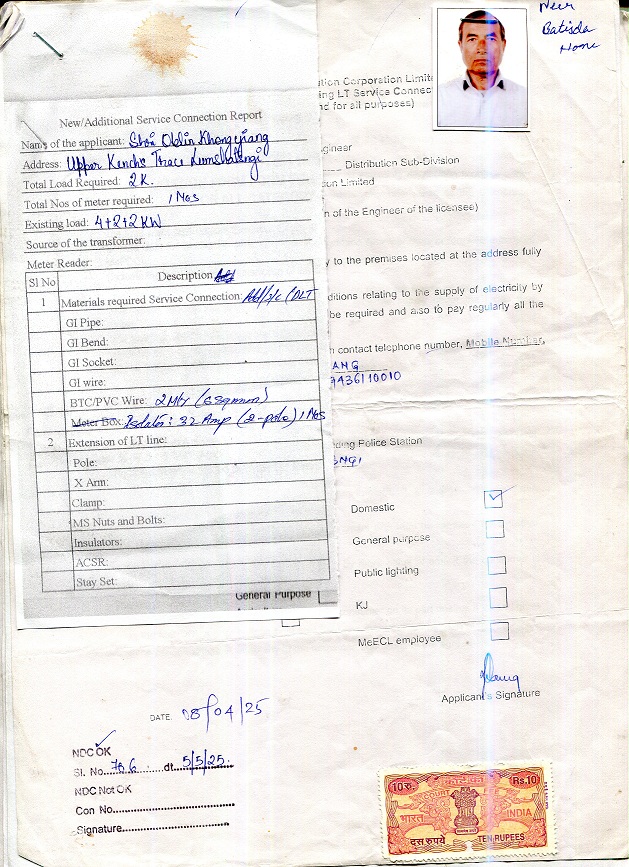 Near
Batisda
Home
New/Additional Service Connection Report
Name of the applicant: Shri Oldin Khongjliang
Address: Upper Kench's Trace Lumshatsngi
Total Load Required: 2 K.
Total Nos of meter required: 1 Nos
Existing load: 4+2+2 KW
Source of the transformer:
Meter Reader:
Sl No Description
1 Materials required Service Connection: Add/s/c (DLT
GI Pipe:
GI Bend:
GI Socket:
GI wire:
BTC/PVC Wire: 2 Mtr (6sqmm)
Meter Box: Isolator: 32 Amp (2-pole) 1 Nos
2 Extension of LT line:
Pole:
X Arm:
Clamp:
MS Nuts and Bolts:
Insulators:
ACSR:
Stay Set:
ution Corporation Limite
ing LT Service Connec
nd for all purposes)
ngineer
Distribution Sub-Division
un Limited
n of the Engineer of the licensee)
y to the premises located at the address fully
ditions relating to the supply of electricity by
be required and also to pay regularly all the
n contact telephone number, Mobile Number,
ANG
9436110010
ding Police Station
NGI
Domestic
General purpose
Public lighting
KJ
MeECL employee
General Purpose
Applicant's Signature
DATE. 08/04/25
NDC OK
Sl. No. 786 dt. 5/5/25.
NDC Not OK
Con No.
Signature
10 रु. Rs.10
भारत INDIA
दस रुपये TEN RUPEES